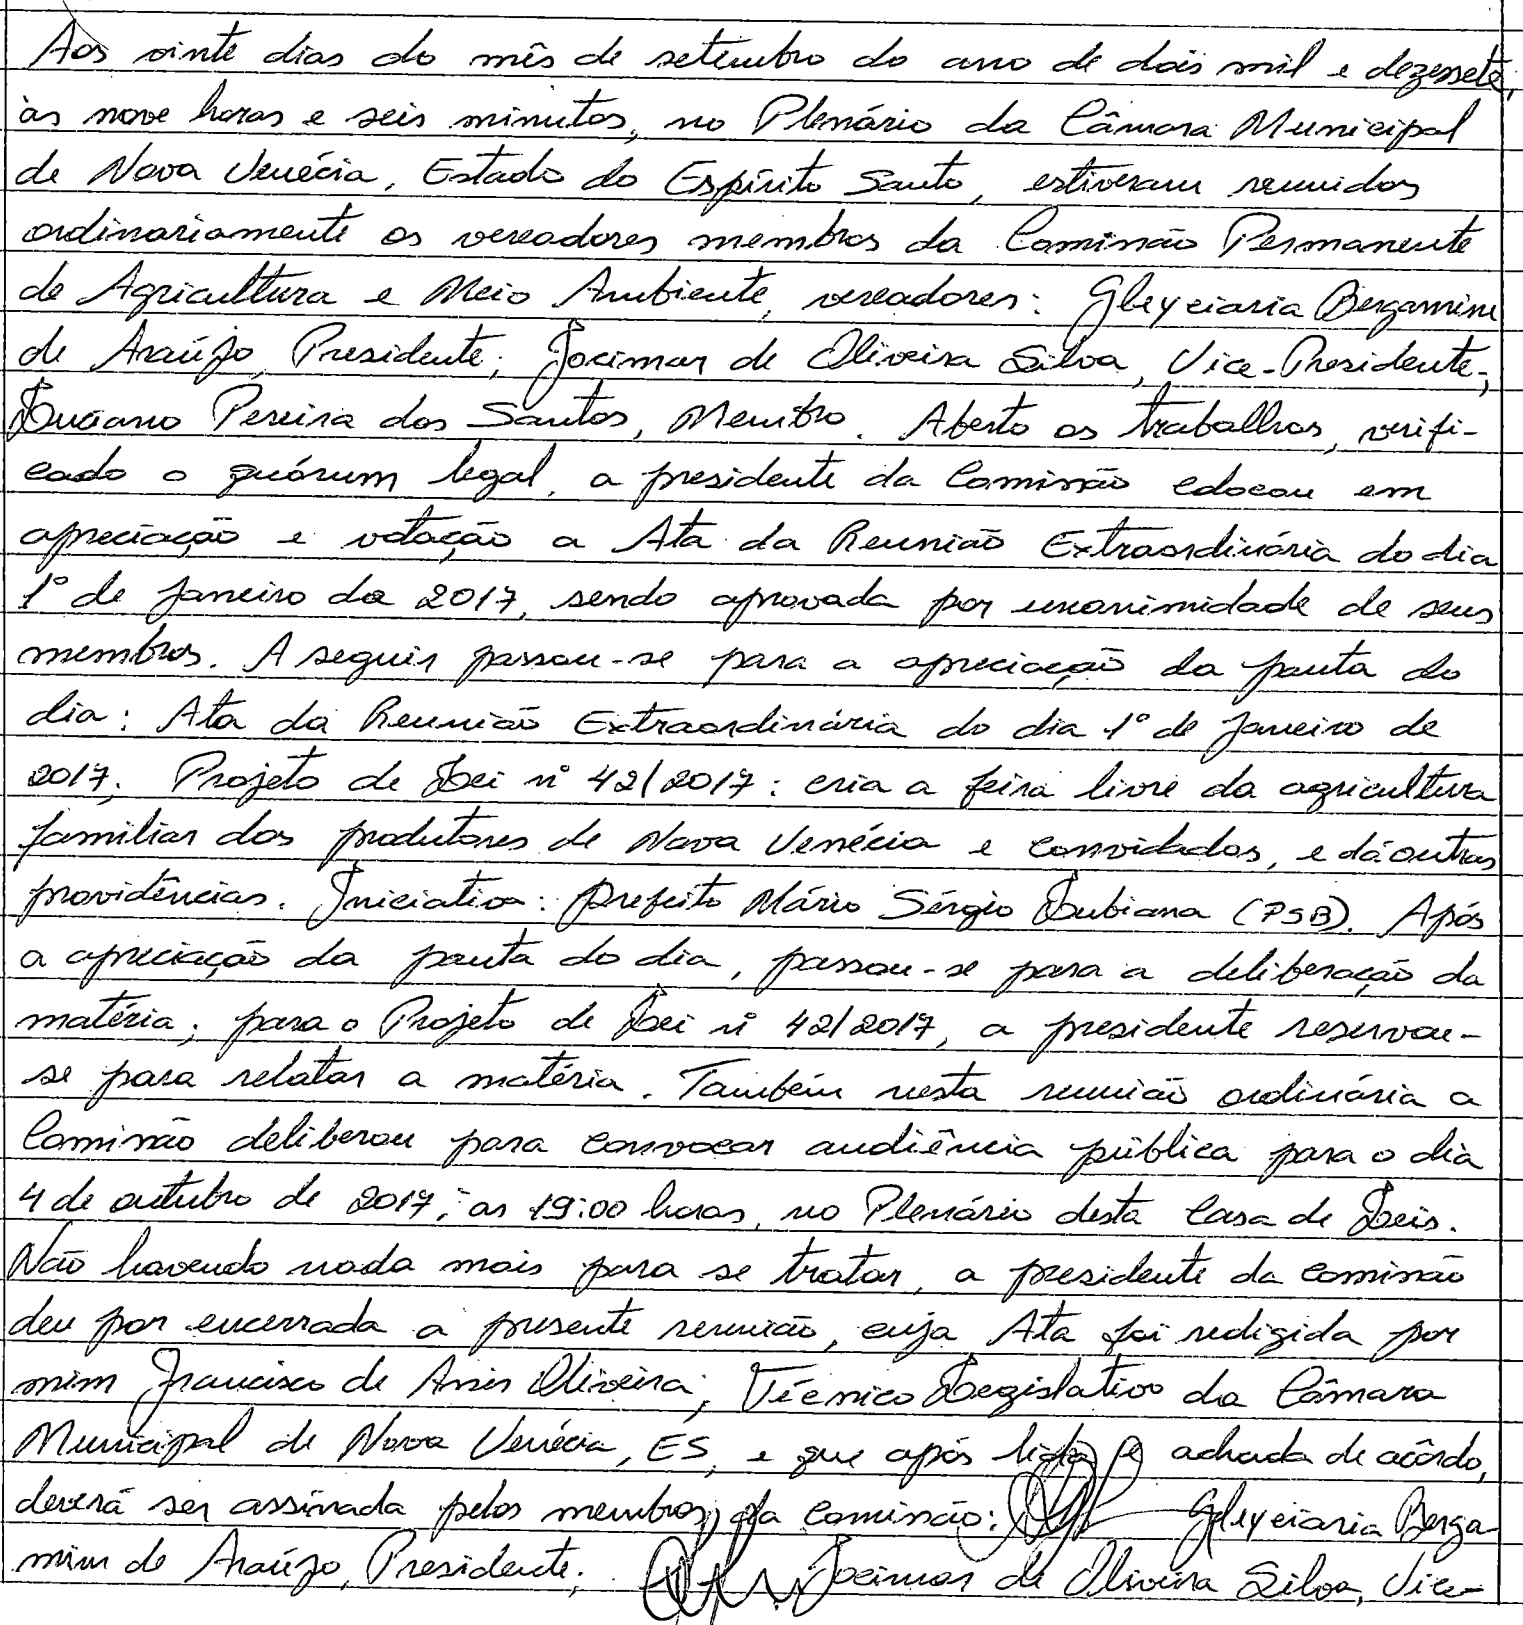 Aos vinte dias do mês de setembro do ano de dois mil e dezessete,
às nove horas e seis minutos, no Plenário da Câmara Municipal
de Nova Venécia, Estado do Espírito Santo, estiveram reunidos
ordinariamente os vereadores membros da Comissão Permanente
de Agricultura e Meio Ambiente, vereadores: Gleyciaria Bergamim
de Araújo, Presidente; Jocimar de Oliveira Silva, Vice-Presidente;
Luciano Pereira dos Santos, Membro. Aberto os trabalhos, verifi-
cado o quórum legal, a presidente da Comissão colocou em
apreciação e votação a Ata da Reunião Extraordinária do dia
1º de Janeiro de 2017, sendo aprovada por unanimidade de seus
membros. A seguir passou-se para a apreciação da pauta do
dia: Ata da Reunião Extraordinária do dia 1º de Janeiro de
2017; Projeto de Lei nº 42/2017: cria a feira livre da agricultura
familiar dos produtores de Nova Venécia e convidados, e dá outras
providências. Iniciativa: Prefeito Mário Sérgio Lubiana (PSB). Após
a apreciação da pauta do dia, passou-se para a deliberação da
matéria; para o Projeto de Lei nº 42/2017, a presidente reservou-
se para relatar a matéria. Também nesta reunião ordinária a
Comissão deliberou para convocar audiência pública para o dia
4 de outubro de 2017, as 19:00 horas, no Plenário desta Casa de Leis.
Não havendo nada mais para se tratar, a presidente da comissão
deu por encerrada a presente reunião, cuja Ata foi redigida por
mim Francisco de Assis Oliveira, Técnico Legislativo da Câmara
Municipal de Nova Venécia, ES, e que após lida e achada de acôrdo,
deverá ser assinada pelos membros da comissão: Gleyciaria Berga-
mim de Araújo, Presidente; Jocimar de Oliveira Silva, Vice-